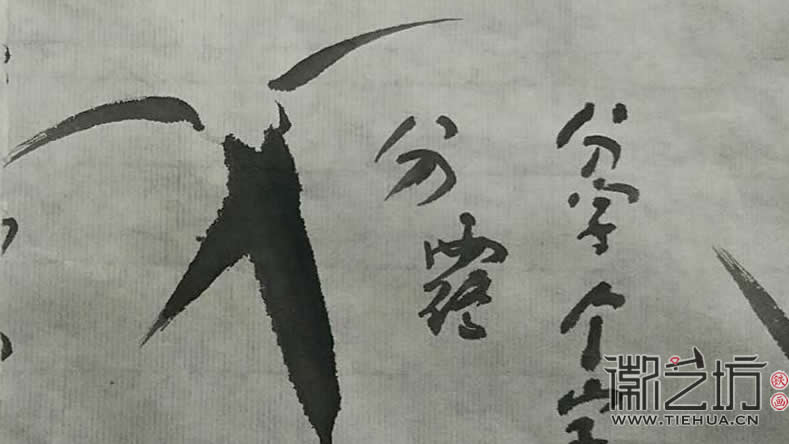 分字个字
分露
徽艺坊
铁画
WWW.TIEHUA.CN